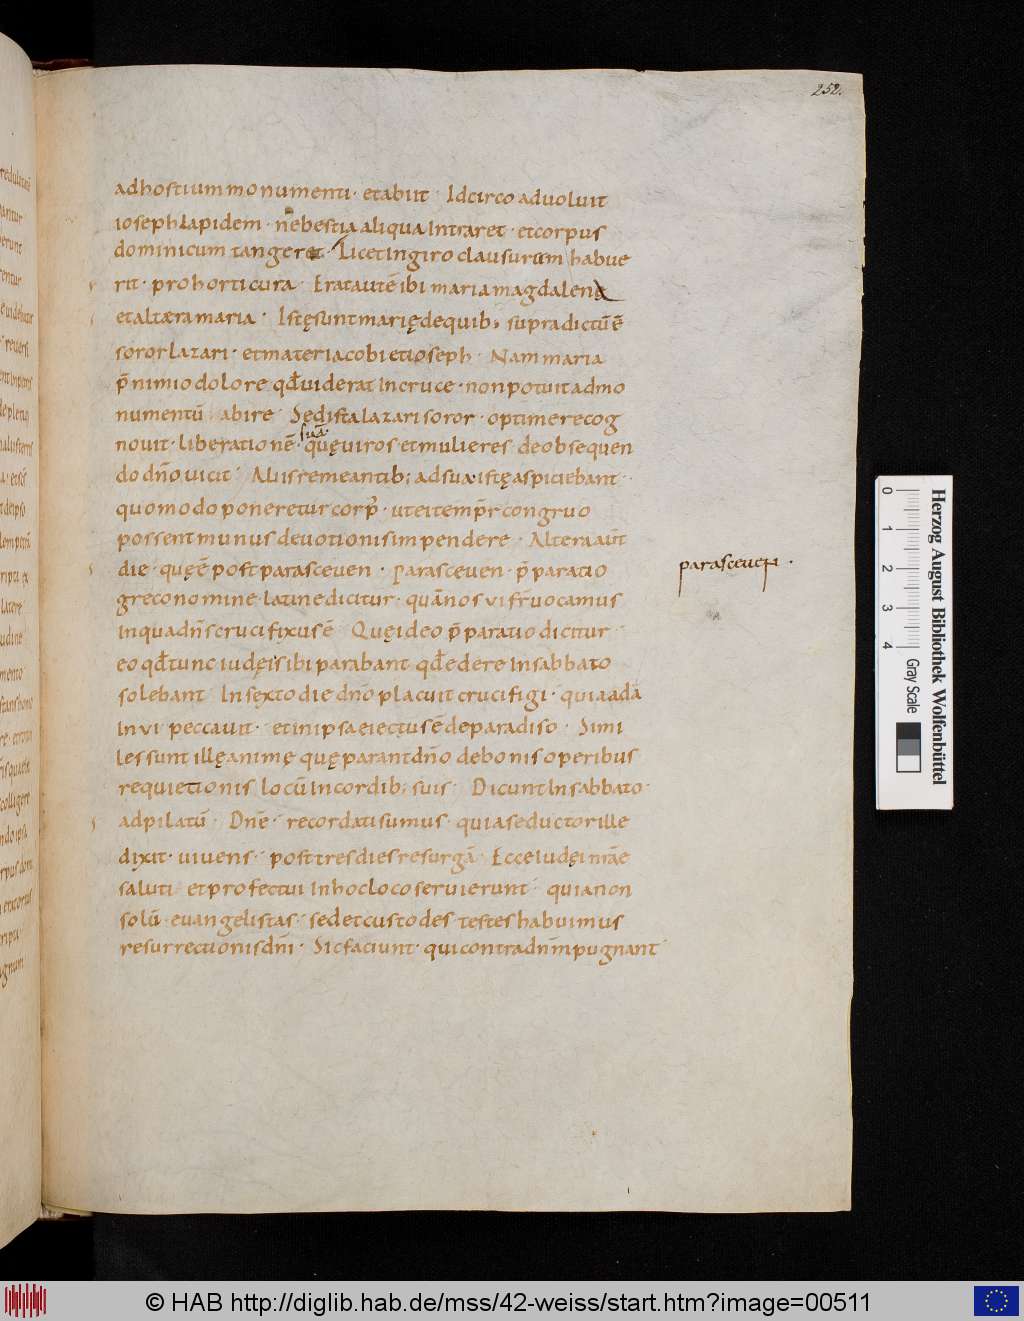 252.
adhostiummonumenti · etabiit · Idcirco aduoluit
ioseph lapidem · nebestia aliqua Intraret · etcorpus
dominicum tangeret · Licet Ingiro clausurum habue
rit · pro horti cura · Erat autē ibi maria magdalene
et altæra maria · Istę sunt marię de quib; supra dictū ē
soror lazari · et mater iacobi et ioseph · Nam maria
p̄ nimio dolore qđ uiderat In cruce · non potuit ad mo
numentū abire · Sed ista lazari soror · optime recog
nouit · liberationē · suā · quę uiros et mulieres de obsequen
do dn̄o uicit · Aliis remeantib; ad sua istę aspiciebant ·
quomodo poneretur corp' · ut ei temp̄r congruo
possent munus deuotionis impendere · Altera aūt
die · quę ē post parasceuen · Parasceuen · p̄paratio
greco nomine · latine dicitur · quā nos vi fr̄ uocamus
In qua dn̄s crucifixus ē · Quę ideo p̄paratio dicitur
eo qđ tunc iudęi sibi parabant qđ edere In sabbato
solebant · In sęxto die dn̄o placuit crucifigi · quia adā
In vi peccauit · et in ipsa eiectus ē de paradiso · Simi
les sunt illę animę quę parant dn̄o de bonis operibus
requietionis locū In cordib; suis · Dicunt In sabbato ·
ad pilatū · Dn̄e · recordati sumus · quia seductor ille
dixit · uiuens · post tres dies resurgā · Ecce iudęi nr̄ae
saluti et profectui In hoc loco seruierunt · quia non
solū · euangelistas · sed et custodes testes habuimus
resurrectionis dn̄i · Sic faciunt · qui contra dn̄m pugnant
parasceuen ·
0 1 2 3 4
Gray Scale
Herzog August Bibliothek Wolfenbüttel
© HAB http://diglib.hab.de/mss/42-weiss/start.htm?image=00511